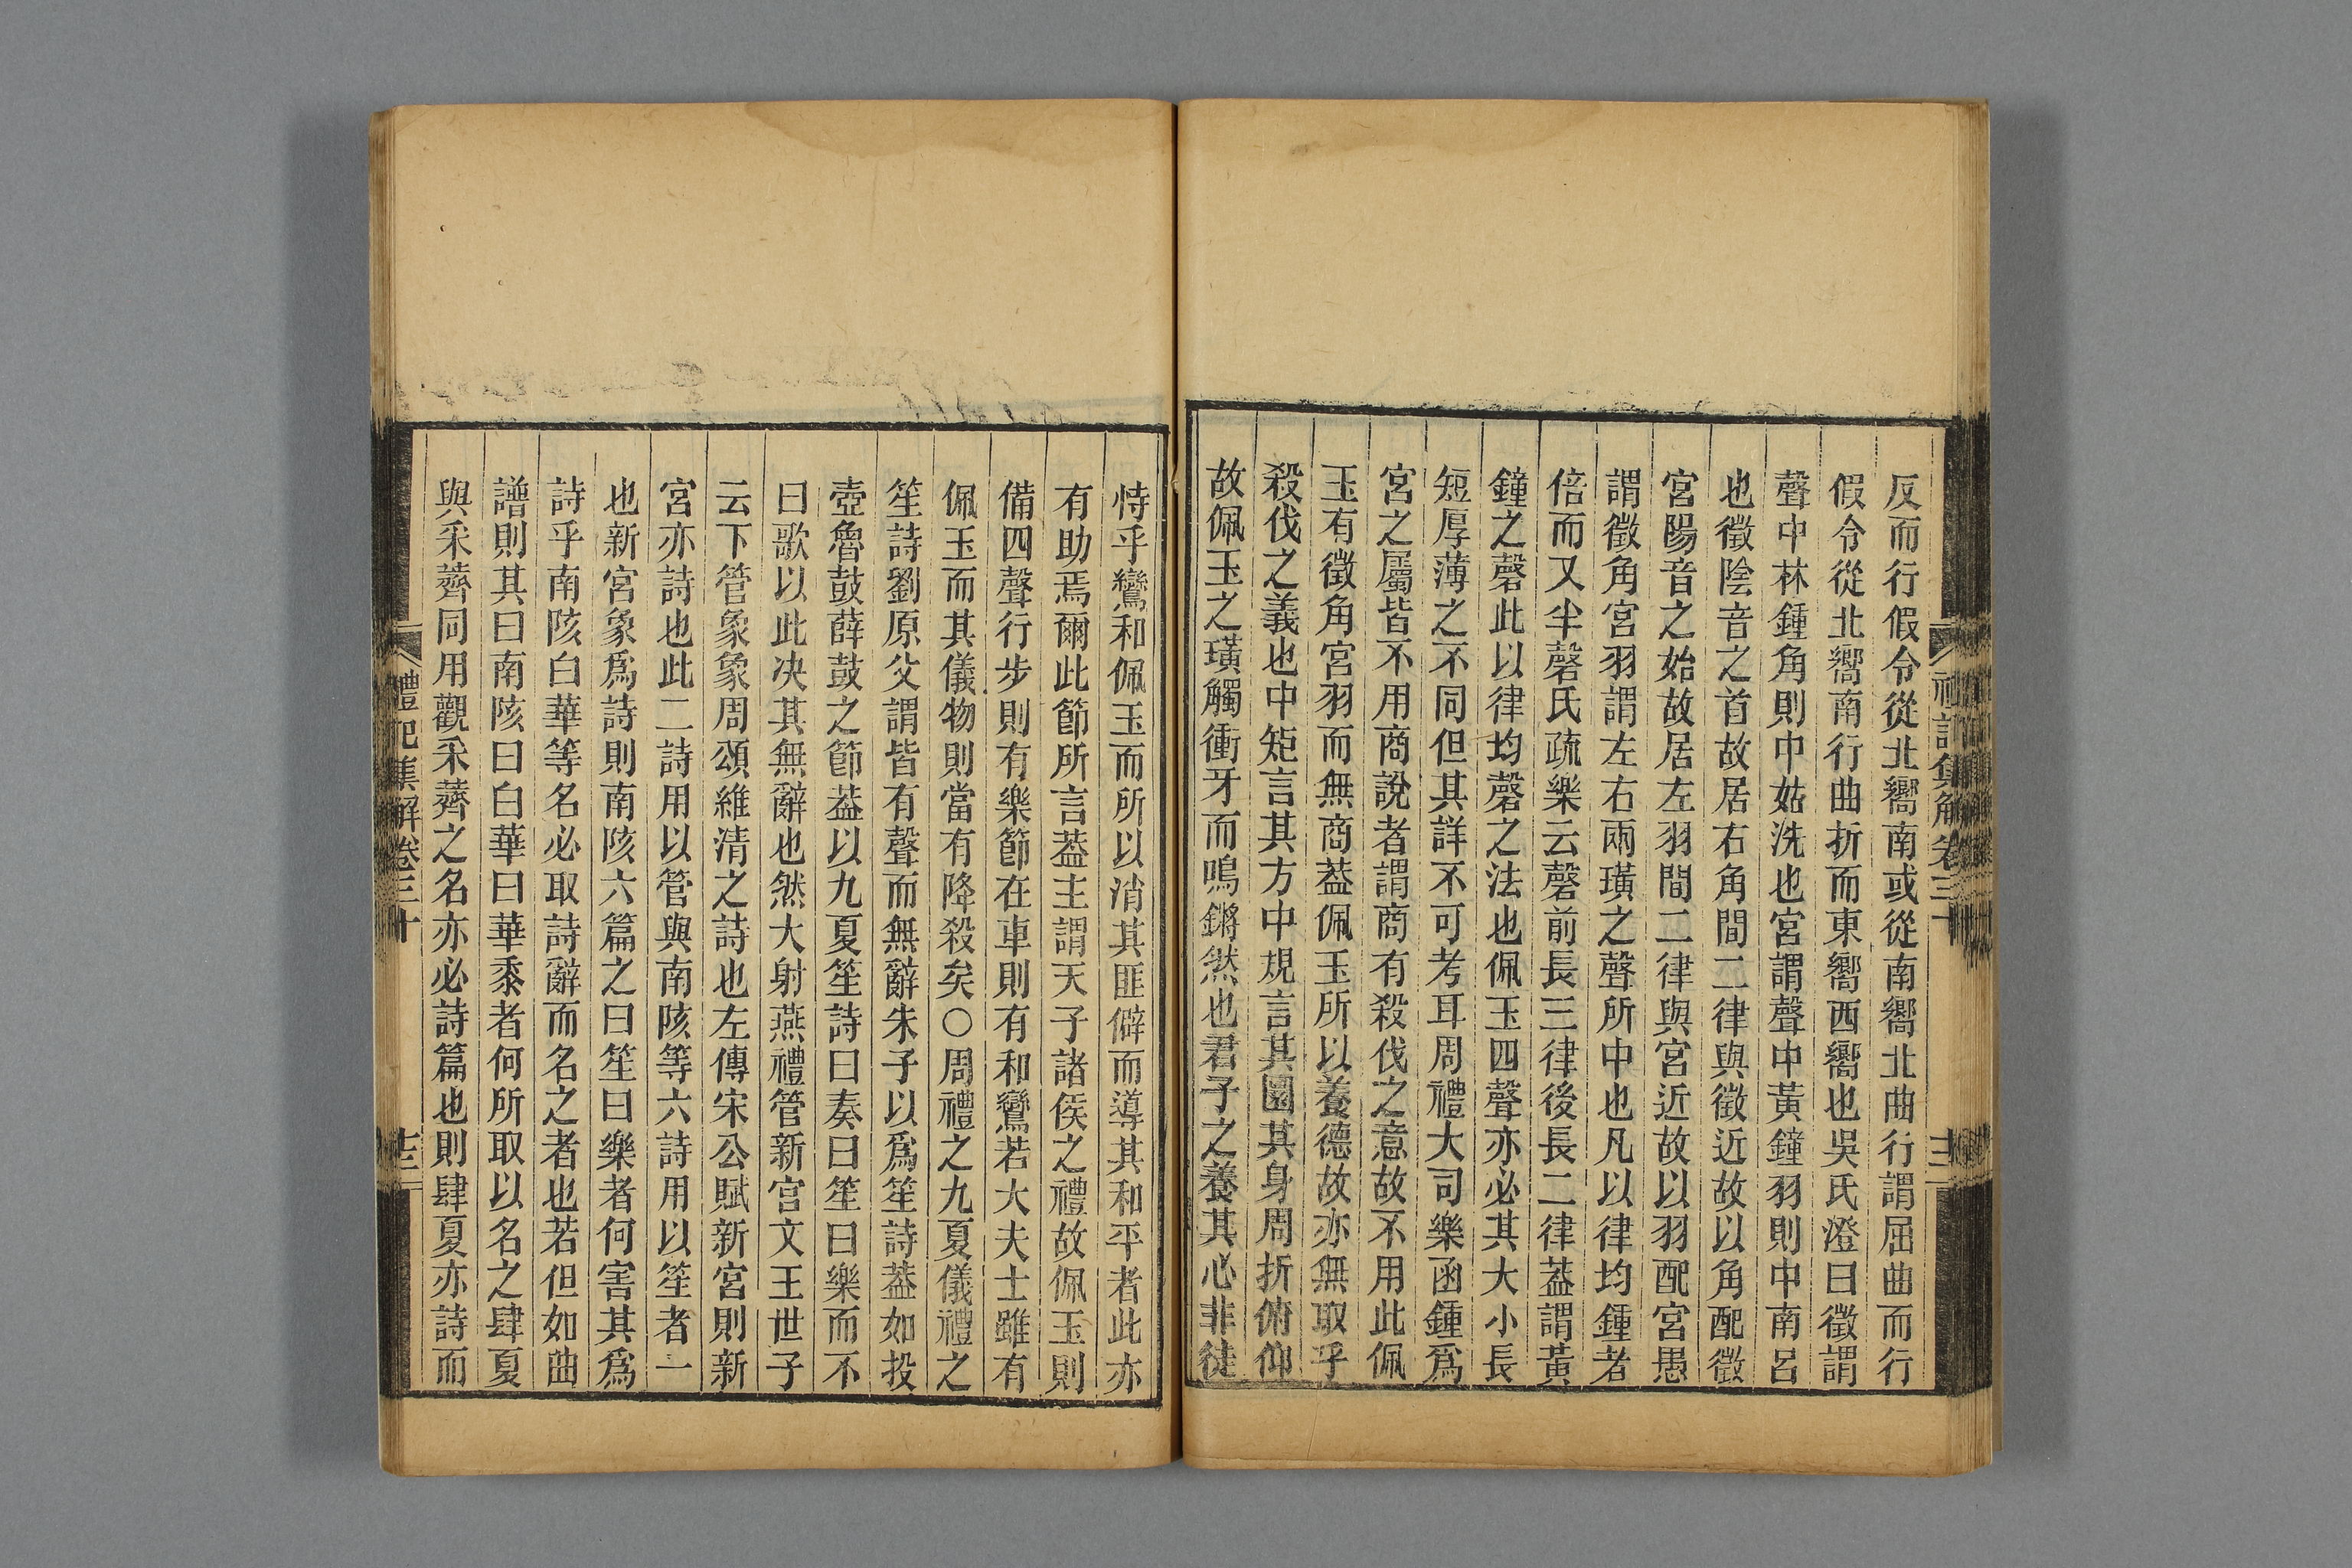 反而行假令從北嚮南或從南嚮北曲行謂屈曲而行
假令從北嚮南行曲折而東嚮西嚮也吳氏澄曰徵謂
聲中林鍾角則中姑洗也宮謂聲中黃鐘羽則中南呂
也徵陰音之首故居右角間二律與徵近故以角配徵
宮陽音之始故居左羽間二律與宮近故以羽配宮愚
謂徵角宮羽謂左右兩璜之聲所中也凡以律均鍾者
倍而又半磬氏疏樂云磬前長三律後長二律葢謂黃
鐘之磬此以律均磬之法也佩玉四聲亦必其大小長
短厚薄之不同但其詳不可考耳周禮大司樂函鍾爲
宮之屬皆不用商說者謂商有殺伐之意故不用此佩
玉有徵角宮羽而無商葢佩玉所以養德故亦無取乎
殺伐之義也中矩言其方中規言其圜其身周折俯仰
故佩玉之璜觸衝牙而鳴鏘然也君子之養其心非徒
恃乎鸞和佩玉而所以消其匪僻而導其和平者此亦
有助焉爾此節所言葢主謂天子諸侯之禮故佩玉則
備四聲行步則有樂節在車則有和鸞若大夫士雖有
佩玉而其儀物則當有降殺矣○周禮之九夏儀禮之
笙詩劉原父謂皆有聲而無辭朱子以爲笙詩葢如投
壺魯鼓薛鼓之節葢以九夏笙詩曰奏曰笙曰樂而不
曰歌以此決其無辭也然大射燕禮管新宮文王世子
云下管象象周頌維清之詩也左傳宋公賦新宮則新
宮亦詩也此二詩用以管與南陔等六詩用以笙者一
也新宮象爲詩則南陔六篇之曰笙曰樂者何害其爲
詩乎南陔白華等名必取詩辭而名之者也若但如曲
譜則其曰南陔曰白華曰華黍者何所取以名之肆夏
與采薺同用觀采薺之名亦必詩篇也則肆夏亦詩而
禮記集解卷三十
十三